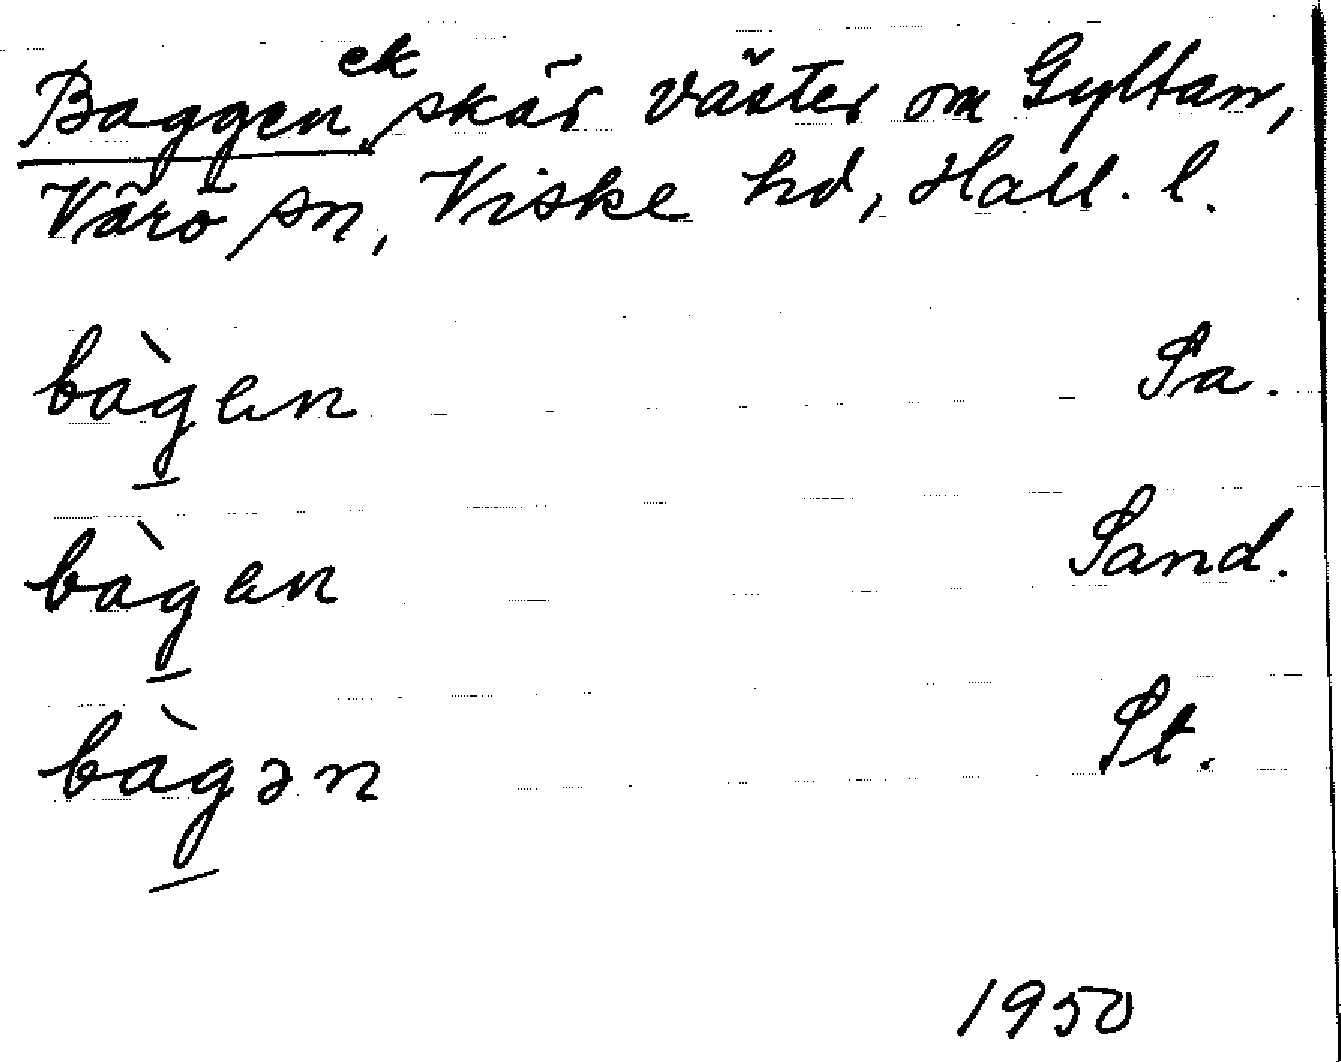 Baggen, ek skär väster om Gyltan,
Värö sn, Viske hd, Hall. l.
bàg̲en Sa.
bàg̲en Sand.
bàg̲ən St.
1950